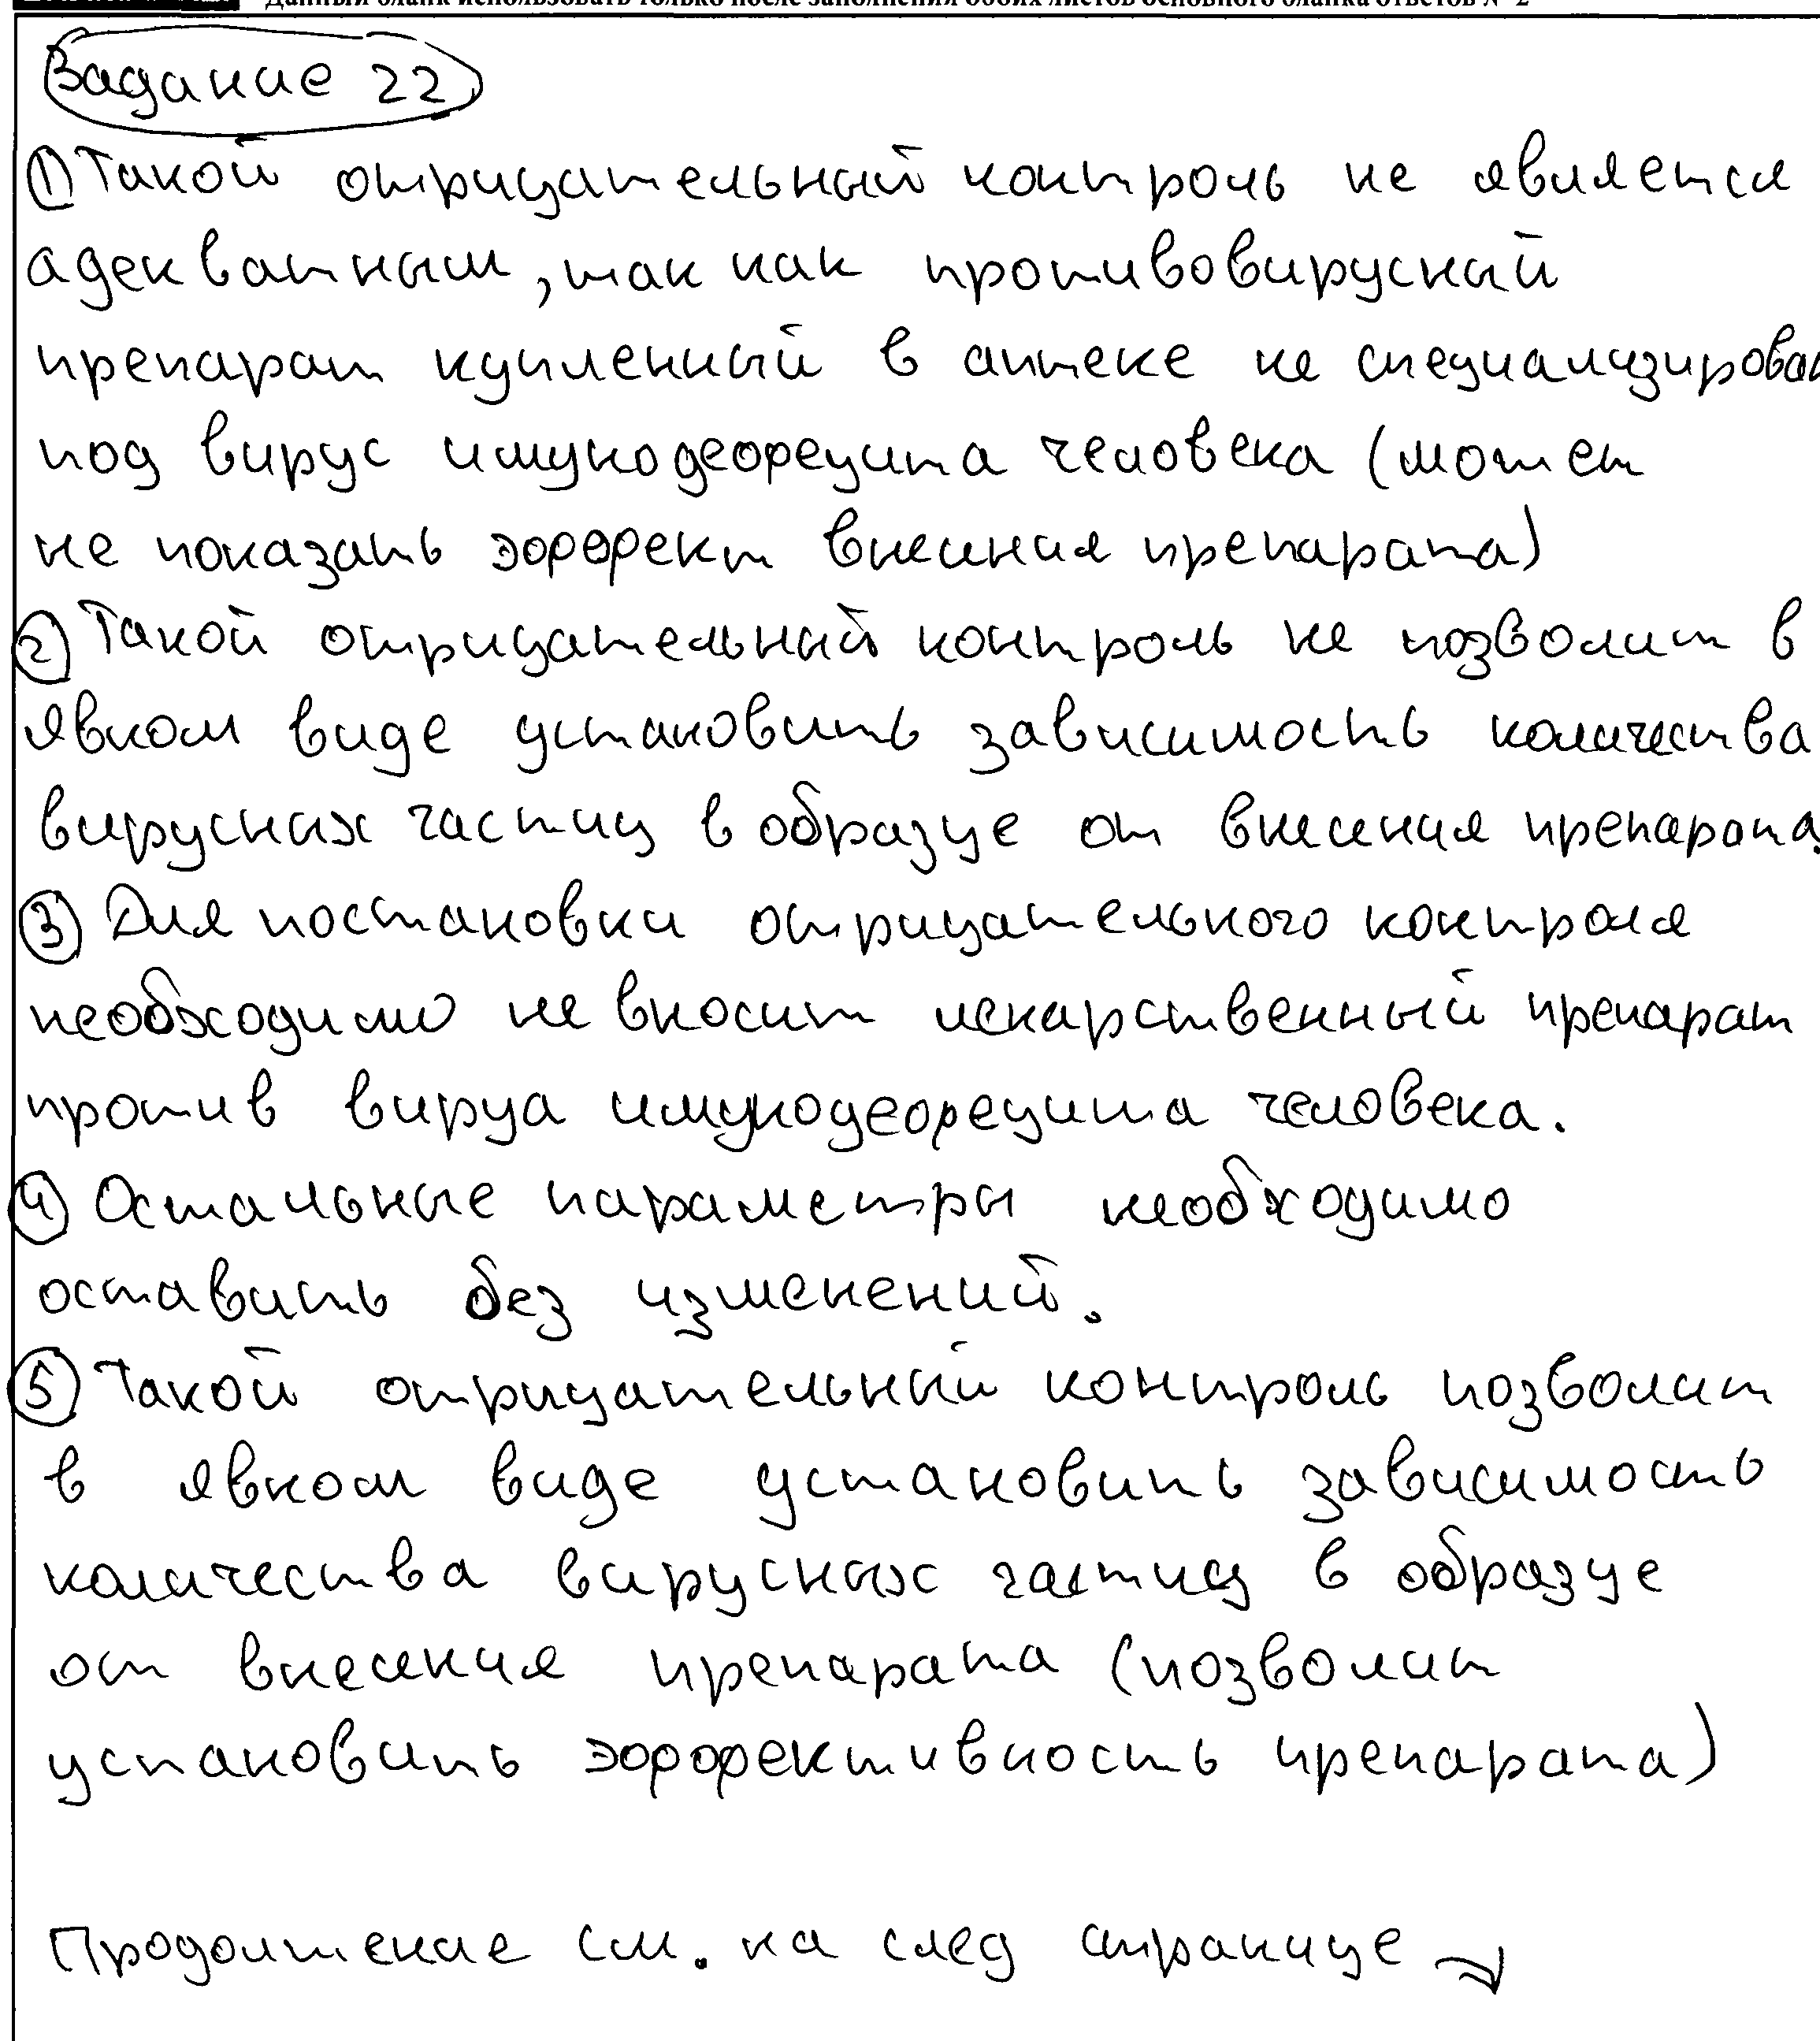 Данный бланк использовать только после заполнения обоих листов основного бланка ответов № 2
Задание 22
1) Такой отрицательный контроль не является
адекватным, так как противовирусный
препарат купленный в аптеке не специализирован
под вирус имунодефецита человека (может
не показать эффект внесния препарата)
2) Такой отрицательный контроль не позволит в
явном виде установить зависимость количества
вирусных частиц в образце от внесения препарата.
3) Для постановки отрицательного контроля
необходимо не вносит лекарственный препарат
против вируа имунодефецита человека.
4) Остальные параметры необходимо
оставить без изменений.
5) Такой отрицательный контроль позволит
в явном виде установить зависимость
количества вирусных частиц в образце
от внесения препарата (позволит
установить эффективность препарата)
Продолжение см. на след странице →